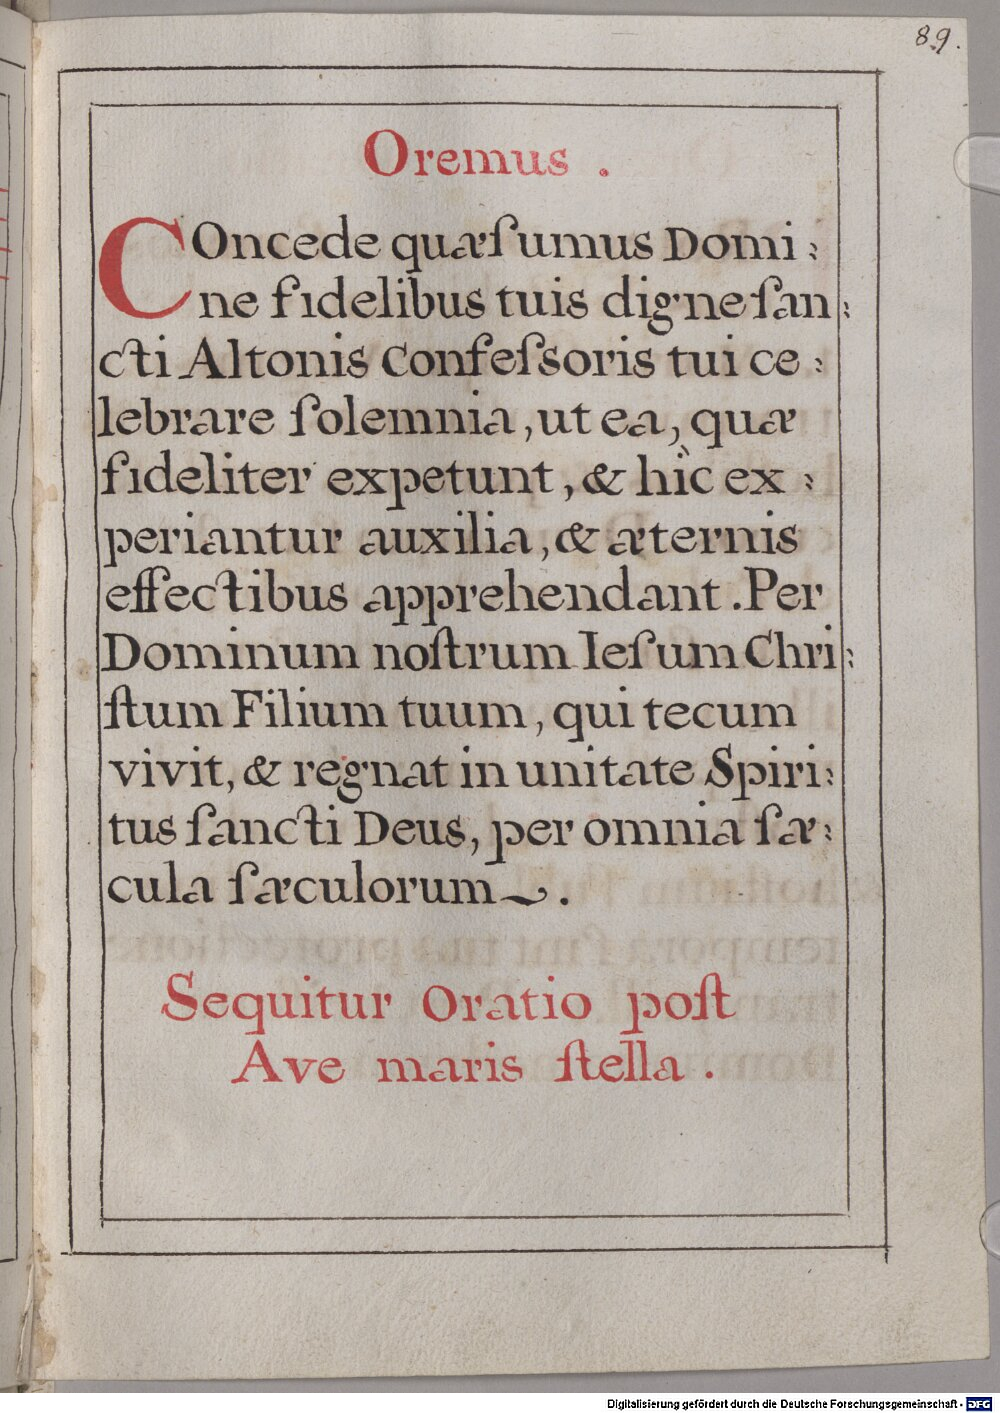 89.
Oremus .
COncede quæſumus Domi:
ne fidelibus tuis digne ſan:
cti Altonis Confeſsoris tui ce:
lebrare ſolemnia, ut ea, quæ
fideliter expetunt, & hìc ex:
periantur auxilia, & æternis
effectibus apprehendant. Per
Dominum noſtrum Ieſum Chri:
ſtum Filium tuum, qui tecum
vivit, & regnat in unitate Spiri:
tus ſancti Deus, per omnia ſæ:
cula ſæculorum.
Sequitur Oratio poſt
Ave maris ſtella .
Digitalisierung gefördert durch die Deutsche Forschungsgemeinschaft - DFG